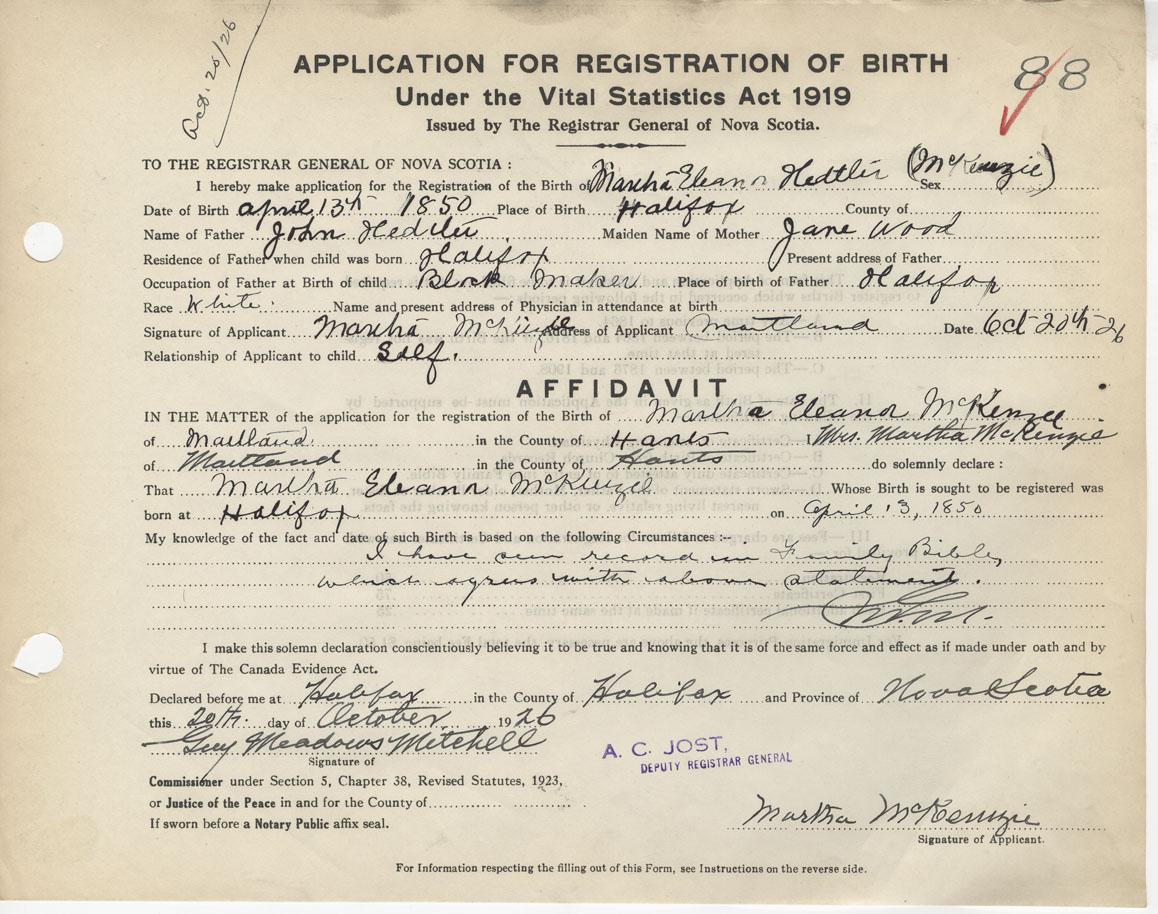 Oct. 26/26
APPLICATION FOR REGISTRATION OF BIRTH
88
Under the Vital Statistics Act 1919
Issued by The Registrar General of Nova Scotia.
TO THE REGISTRAR GENERAL OF NOVA SCOTIA :
I hereby make application for the Registration of the Birth of Martha Eleanor Hedtler (McKenzie) Sex
Date of Birth April 13th 1850 Place of Birth Halifax County of
Name of Father John Hedtler Maiden Name of Mother Jane Wood
Residence of Father when child was born Halifax Present address of Father
Occupation of Father at Birth of child Block Maker Place of birth of Father Halifax
Race White Name and present address of Physician in attendance at birth
Signature of Applicant Martha McKenzie Address of Applicant Maitland Date Oct 20th 26
Relationship of Applicant to child Self.
AFFIDAVIT
IN THE MATTER of the application for the registration of the Birth of Martha Eleanor McKenzie
of Maitland in the County of Hants I Mrs. Martha McKenzie
of Maitland in the County of Hants do solemnly declare :
That Martha Eleanor McKenzie Whose Birth is sought to be registered was
born at Halifax on April 13, 1850
My knowledge of the fact and date of such Birth is based on the following Circumstances :--
I have seen record in Family Bible,
which agrees with above statement.
I make this solemn declaration conscientiously believing it to be true and knowing that it is of the same force and effect as if made under oath and by
virtue of The Canada Evidence Act.
Declared before me at Halifax in the County of Halifax and Province of Nova Scotia
this 20th day of October 1926
Guy Meadows Mitchell
Signature of
A. C. JOST,
DEPUTY REGISTRAR GENERAL
Commissioner under Section 5, Chapter 38, Revised Statutes, 1923,
or Justice of the Peace in and for the County of
If sworn before a Notary Public affix seal.
Martha McKenzie
Signature of Applicant.
For Information respecting the filling out of this Form, see Instructions on the reverse side.